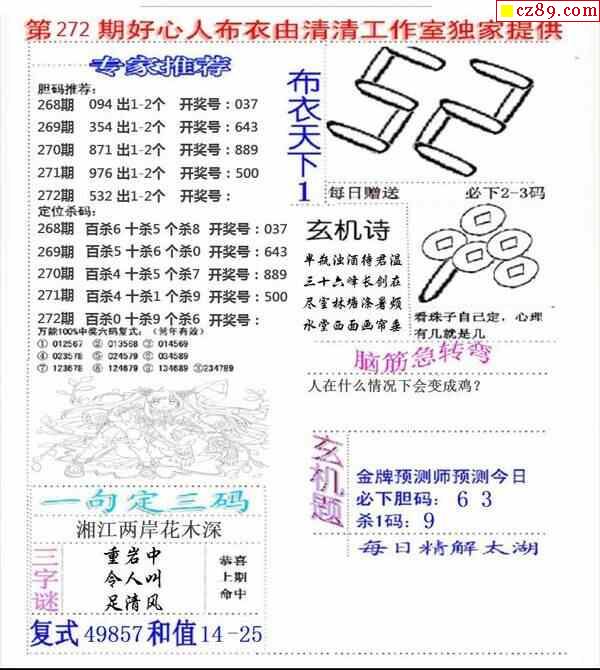 cz89.com
第272期好心人布衣由清清工作室独家提供
专家推荐
胆码推荐:
268期 094出1-2个 开奖号:037
269期 354出1-2个 开奖号:643
270期 871出1-2个 开奖号:889
271期 976出1-2个 开奖号:500
272期 532出1-2个 开奖号:
定位杀码:
268期 百杀6 十杀5 个杀8 开奖号:037
269期 百杀5 十杀6 个杀0 开奖号:643
270期 百杀4 十杀5 个杀7 开奖号:889
271期 百杀4 十杀1 个杀9 开奖号:500
272期 百杀0 十杀9 个杀6 开奖号:
万能100%中奖六码复式:(常年有效)
①012567 ②013568 ③014569
④023578 ⑤024579 ⑥034589
⑦123678 ⑧124679 ⑨134689 ⑩234789
一句定三码
湘江两岸花木深
三字谜
重岩中
令人叫
足清风
恭喜
上期
命中
复式49857和值14-25
布衣天下1
52
每日赠送 必下2-3码
玄机诗
半瓶浊酒待君温
三十六峰长剑在
尽室林塘涤暑烦
水堂西面画帘垂
看珠子自己定,心理
有几就是几
脑筋急转弯
人在什么情况下会变成鸡?
玄机题
金牌预测师预测今日
必下胆码: 6 3
杀1码: 9
每日精解太湖